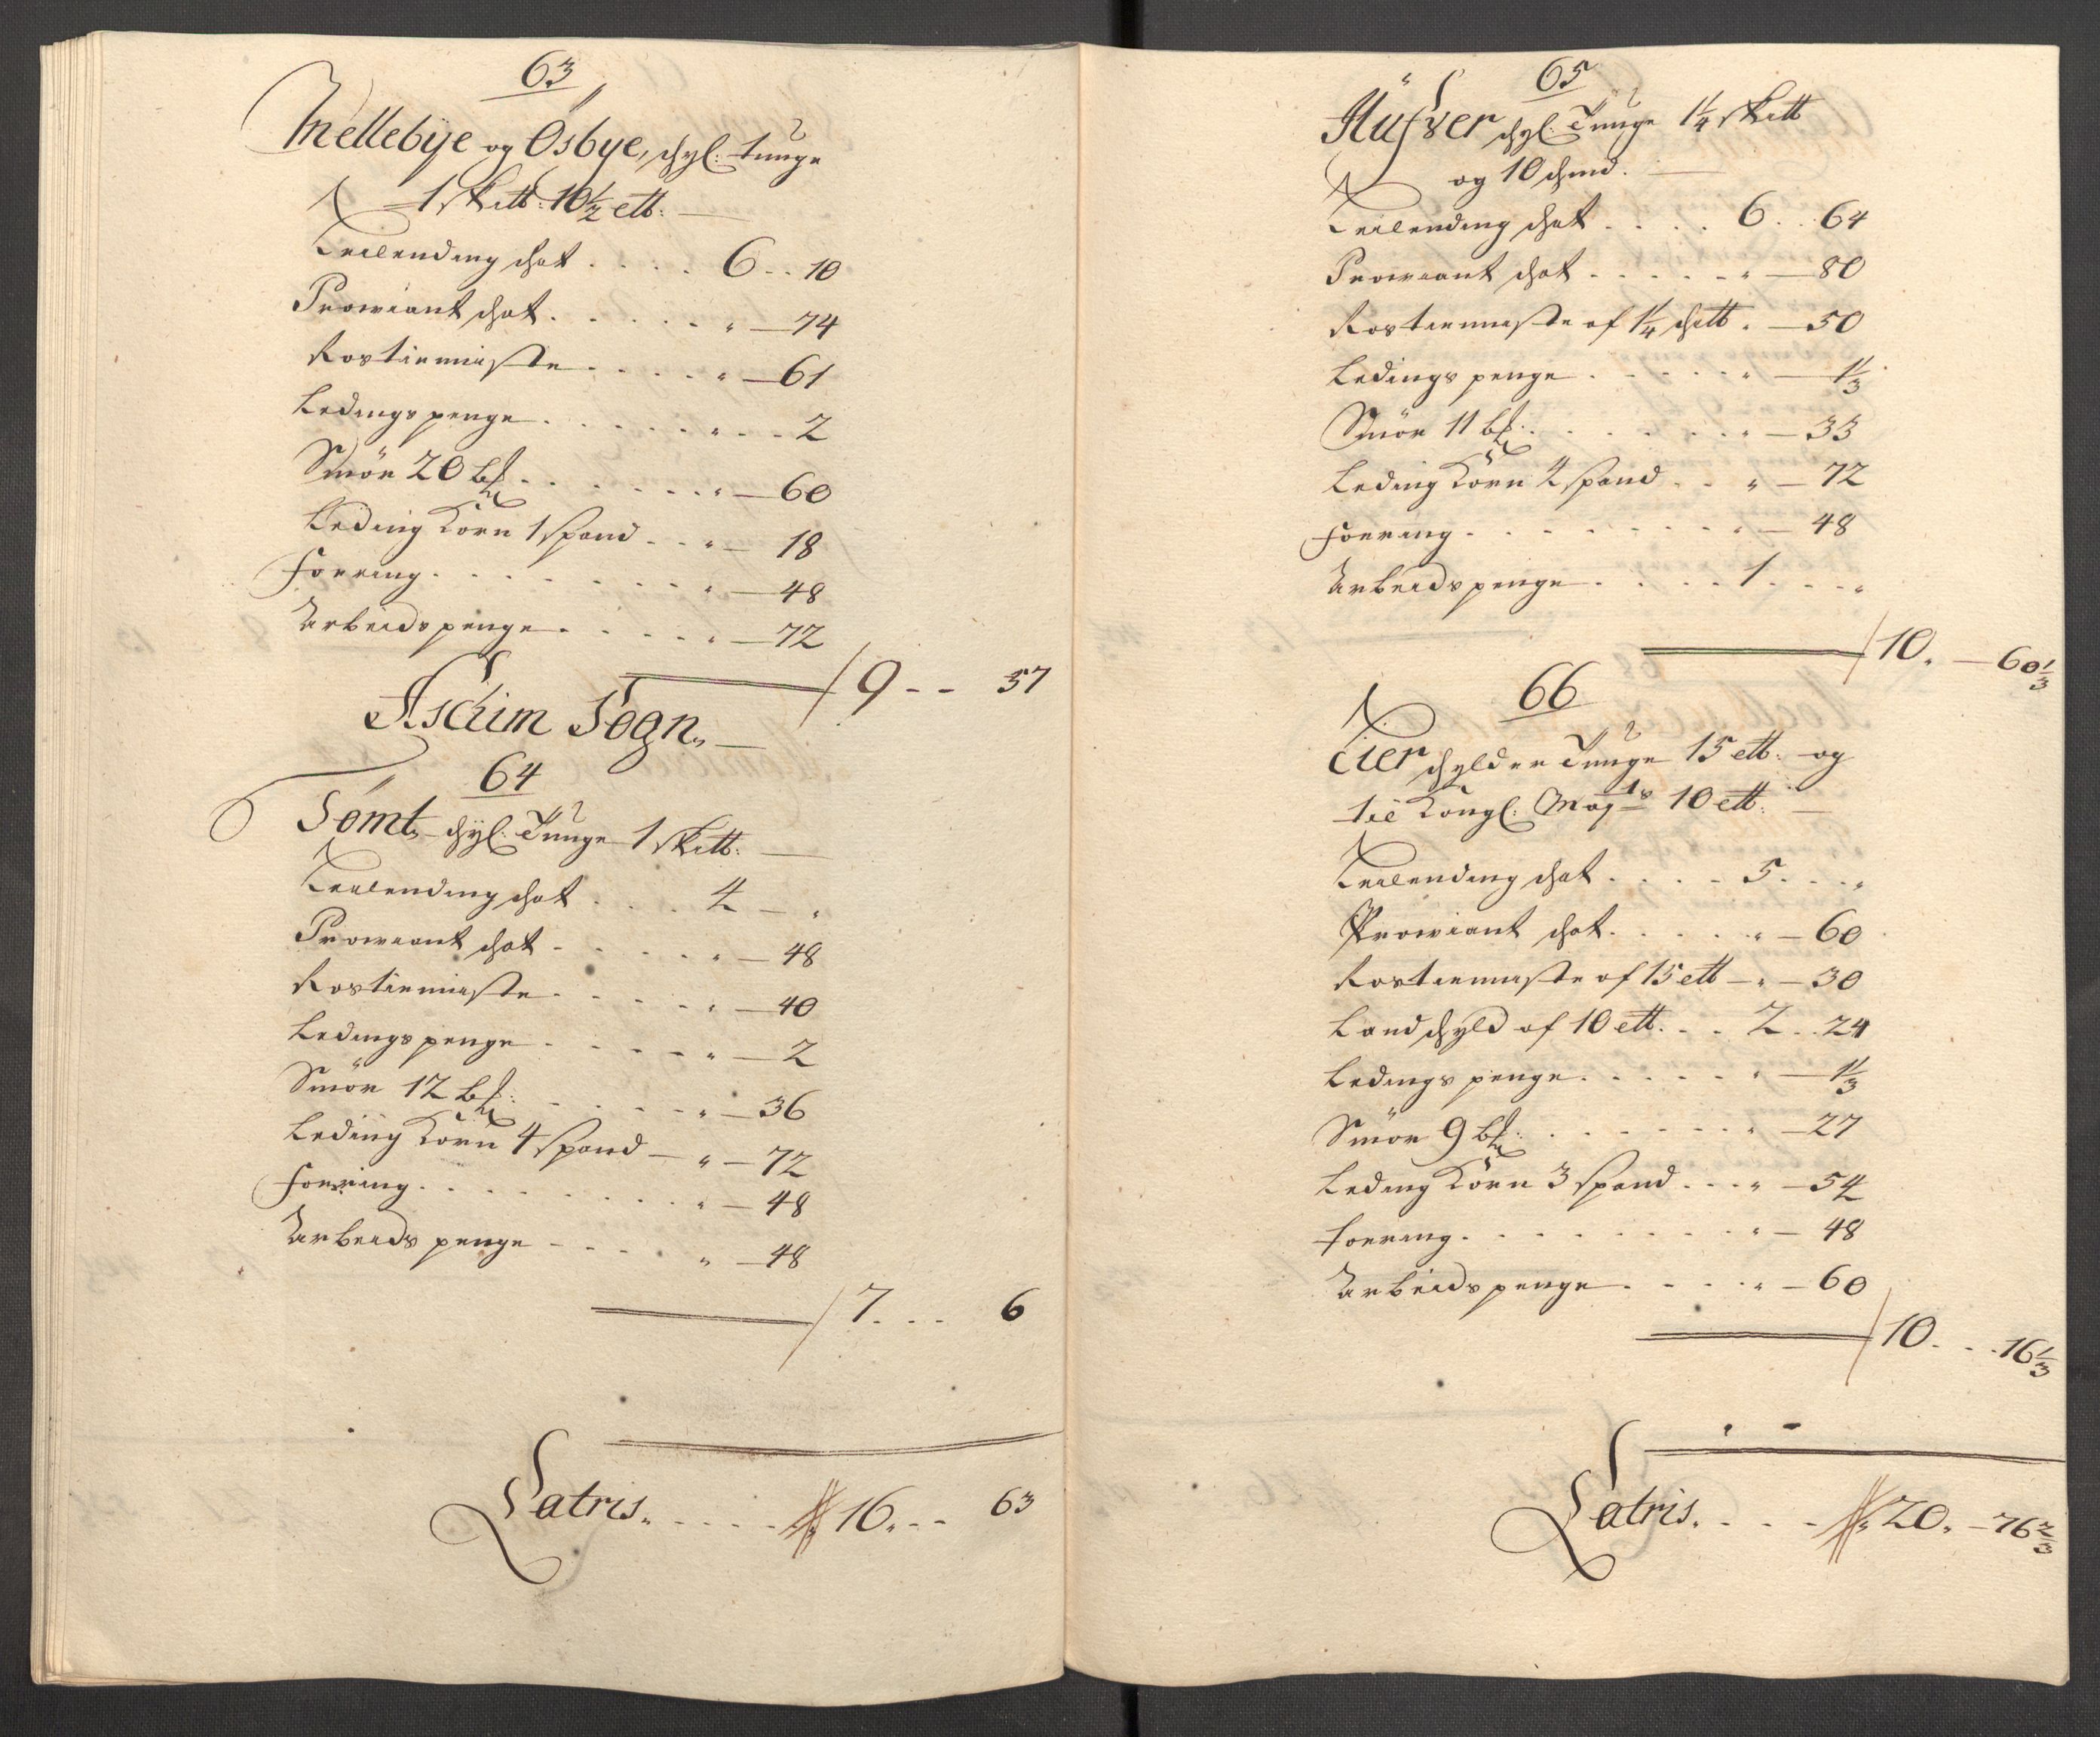 63
Mellebÿe og Osbye, schyl: tunge
1 skitt: 10½ ett:
Leilending schat . . . . 6 . . 10
Prowiant schat . . . . . . „ — 74
Rostienniste . . . . . „ — 61
Ledings penge . . . . . . „ - - 2
Smör 20 b₶ . . . . . . . „ — 60
Leding Korn 1 spand . . „ — 18
Foering . . . . . . . . . „ — 48
Arbeids penge . . . . . „ — 72
9 - - 57
Aschim Sogn„
64
Sömt„ schÿl: Tunge 1 skitt:
Leilending schat . . . . 4 — „
Prowiant schat . . . . . . „ — 48
Rostienniste . . . . . . „ — 40
Ledings penge . . . . . „ — 2
Smör 12 b₶: . . . . . „ — 36
Leding Korn 4 spand — „ — 72
Foering . . . . . . . . . „ — 48
Arbeids penge . . . . „ — 48
7 . . . 6
Latris. . . . . 16 . . . 63
65
Hüfver schyl: Tunge 1¼ skitt
og 10 schind.
Leilending schat . . . . 6 . . 64
Prowiant schat . . . . . . „ — 80
Rostienniste af 1¼ schitt . — 50
Ledings penge . . . . . . „ — 1⅓
Smör 11 b₶: . . . . . . . „ — 33
Leding Korn 4 spand . . „ — 72
Foering . . . . . . . . „ — 48
Arbeids penge . . . . 1 . . . „
10. — 60⅓
66
Eier schylder Tunge 15 ett: og
til Kongl: Maj:ts 10 ett:
Leilending schat . . . . 5 . . . „
Prowiant schat . . . . . „ — 60
Rostienniste af 15 ett — „ — 30
Landschyld af 10 ett. . . 2 . . 24
Ledings penge . . . . . . „ — 1⅓
Smör 9 b₶: . . . . . . . „ — 27
Leding Korn 3 spand . . . „ — 54
Foering . . . . . . . . . „ — 48
Arbeids penge . . . . „ — 60
10 . . . 16⅓
Latris. . . . 20. — 76⅔